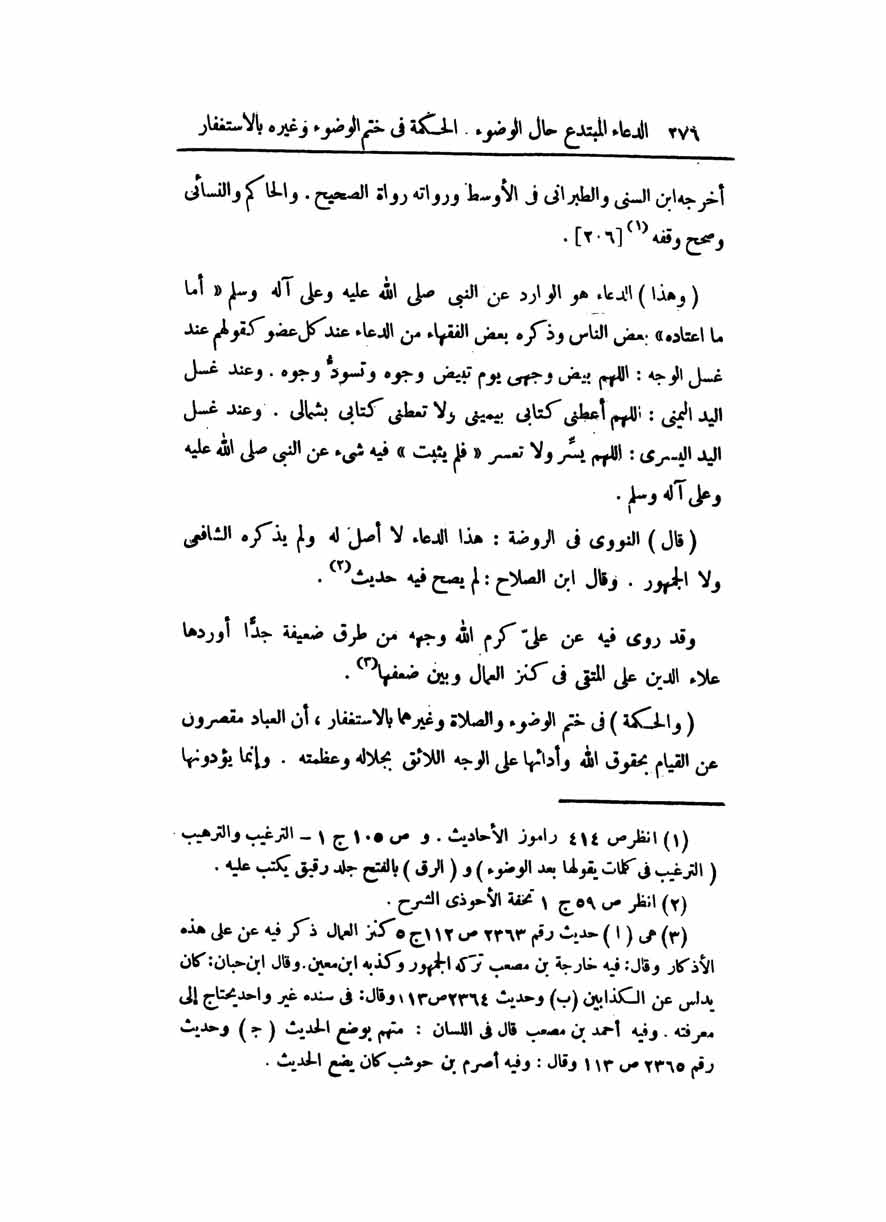 ٢٧٩ الدعاء المبتدع حال الوضوء . الحكمة فى ختم الوضوء وغيره بالاستغفار
أخرجه ابن السنى والطبرانى فى الأوسط ورواته رواة الصحيح . والحاكم والنسائى
وصحح وقفه (١) [٢٠٦] .
( وهذا ) الدعاء هو الوارد عن النبى صلى الله عليه وعلى آله وسلم « أما
ما اعتاده» بعض الناس وذكره بعض الفقهاء من الدعاء عند كل عضو كقولهم عند
غسل الوجه : اللهم بيض وجهى يوم تبيض وجوه وتسودُّ وجوه . وعند غسل
اليد اليمنى : اللهم أعطنى كتابى بيمينى ولا تعطنى كتابى بشمالى . وعند غسل
اليد اليسرى : اللهم يسِّر ولا تعسر « فلم يثبت » فيه شىء عن النبى صلى الله عليه
وعلى آله وسلم .
( قال ) النووى فى الروضة : هذا الدعاء لا أصل له ولم يذكره الشافعى
ولا الجمهور . وقال ابن الصلاح : لم يصح فيه حديث(٢) .
وقد روى فيه عن علىّ كرم الله وجهه من طرق ضعيفة جدًّا أوردها
علاء الدين على المتقى فى كنز العمال وبين ضعفها(٣) .
( والحكمة ) فى ختم الوضوء والصلاة وغيرهما بالاستغفار ، أن العباد مقصرون
عن القيام بحقوق الله وأدائها على الوجه اللائق بجلاله وعظمته . وإنما يؤدونها
(١) انظر ص ٤١٤ راموز الأحاديث . و ص ١٠٥ ج ١ – الترغيب والترهيب
( الترغيب فى كلمات يقولها بعد الوضوء ) و ( الرق ) بالفتح جلد رقيق يكتب عليه .
(٢) انظر ص ٥٩ ج ١ تحفة الأحوذى الشرح .
(٣) هى ( ا ) حديث رقم ٢٣٦٣ ص ١١٢ ج ٥ كنز العمال ذكر فيه عن على هذه
الأذكار وقال: فيه خارجة بن مصعب تركه الجمهور وكذبه ابن معين . وقال ابن حبان: كان
يدلس عن الكذابين (ب) وحديث ٢٣٦٤ ص ١١٣ وقال: فى سنده غير واحد يحتاج إلى
معرفته . وفيه أحمد بن مصعب قال فى اللسان : متهم بوضع الحديث ( ج ) وحديث
رقم ٢٣٦٥ ص ١١٣ وقال : وفيه أصرم بن حوشب كان يضع الحديث .